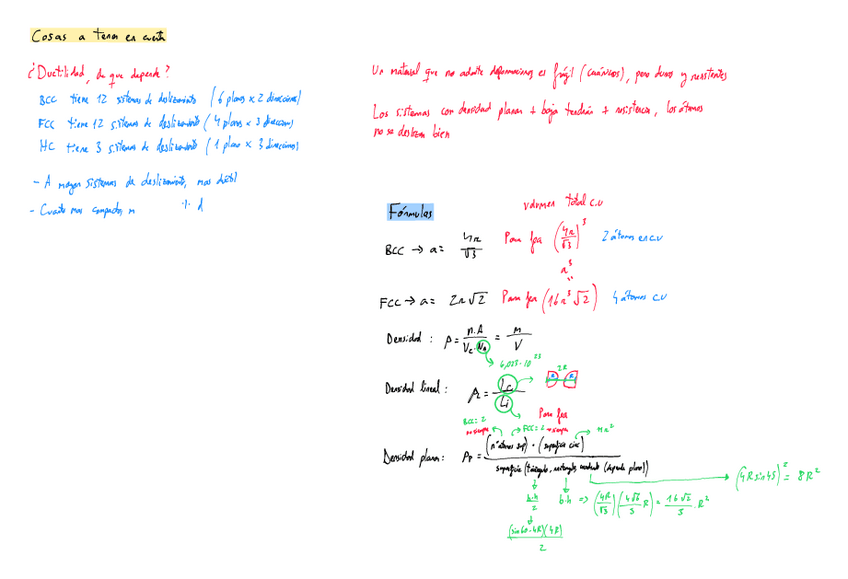 Cosas a tener en cuenta
¿Ductilidad, de que depende?
BCC tiene 12 sistemas de deslizamiento (6 planos x 2 direcciones)
FCC tiene 12 sistemas de deslizamiento (4 planos x 3 direcciones)
HC tiene 3 sistemas de deslizamiento (1 plano x 3 direcciones)
- A mayor sistemas de deslizamiento, mas dúctil
- Cuanto mas compactos, m
Un material que no admite deformaciones es frágil (cerámicos), pero duros y resistentes
Los sistemas con densidad planar + baja tendrán + resistencia, los átomos
no se deslizan bien
Fórmulas
volumen total c.u
BCC → a = 4R/√3 Para fpa (4R/√3)³ 2 átomos en c.u
a³
FCC → a = 2R√2 Para fpa (16R³√2) 4 átomos c.u
Densidad: ρ = n.A/Vc.Na = m/V
6,023·10²³
Densidad lineal: ρL = Lc/Li
2R
R R
Para fpa
BCC = 2 FCC = 2 πR²
Densidad planar: ρp = (nº átomos sup)·(superficie circ)
superficie (triángulo, rectángulo, cuadrado (depende plano))
b.h/2 b.h ⇒ (4R/√3)(4√6/3 R) = 16√2/3 · R²
(4R sin 45)² = 8R²
(sin60·4R)(4R)/2